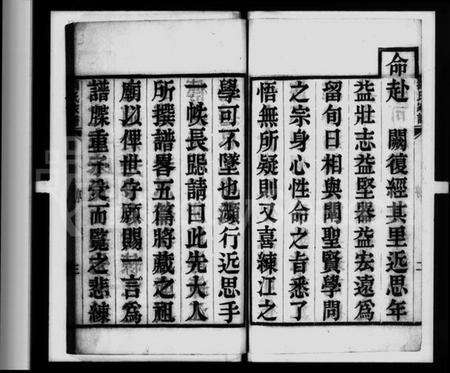 命赴 闕復經其里近思年
益壯志益堅器益宏遠為
留旬日相與闡聖賢學問
之宗身心性命之旨悉了
悟無所疑則又喜練江之
學可不墜也瀕行近思手
一帙長跽請曰此先大人
所撰譜畧五篇將藏之祖
廟以俾世守願賜一言為
譜牒重予受而覽之悲練